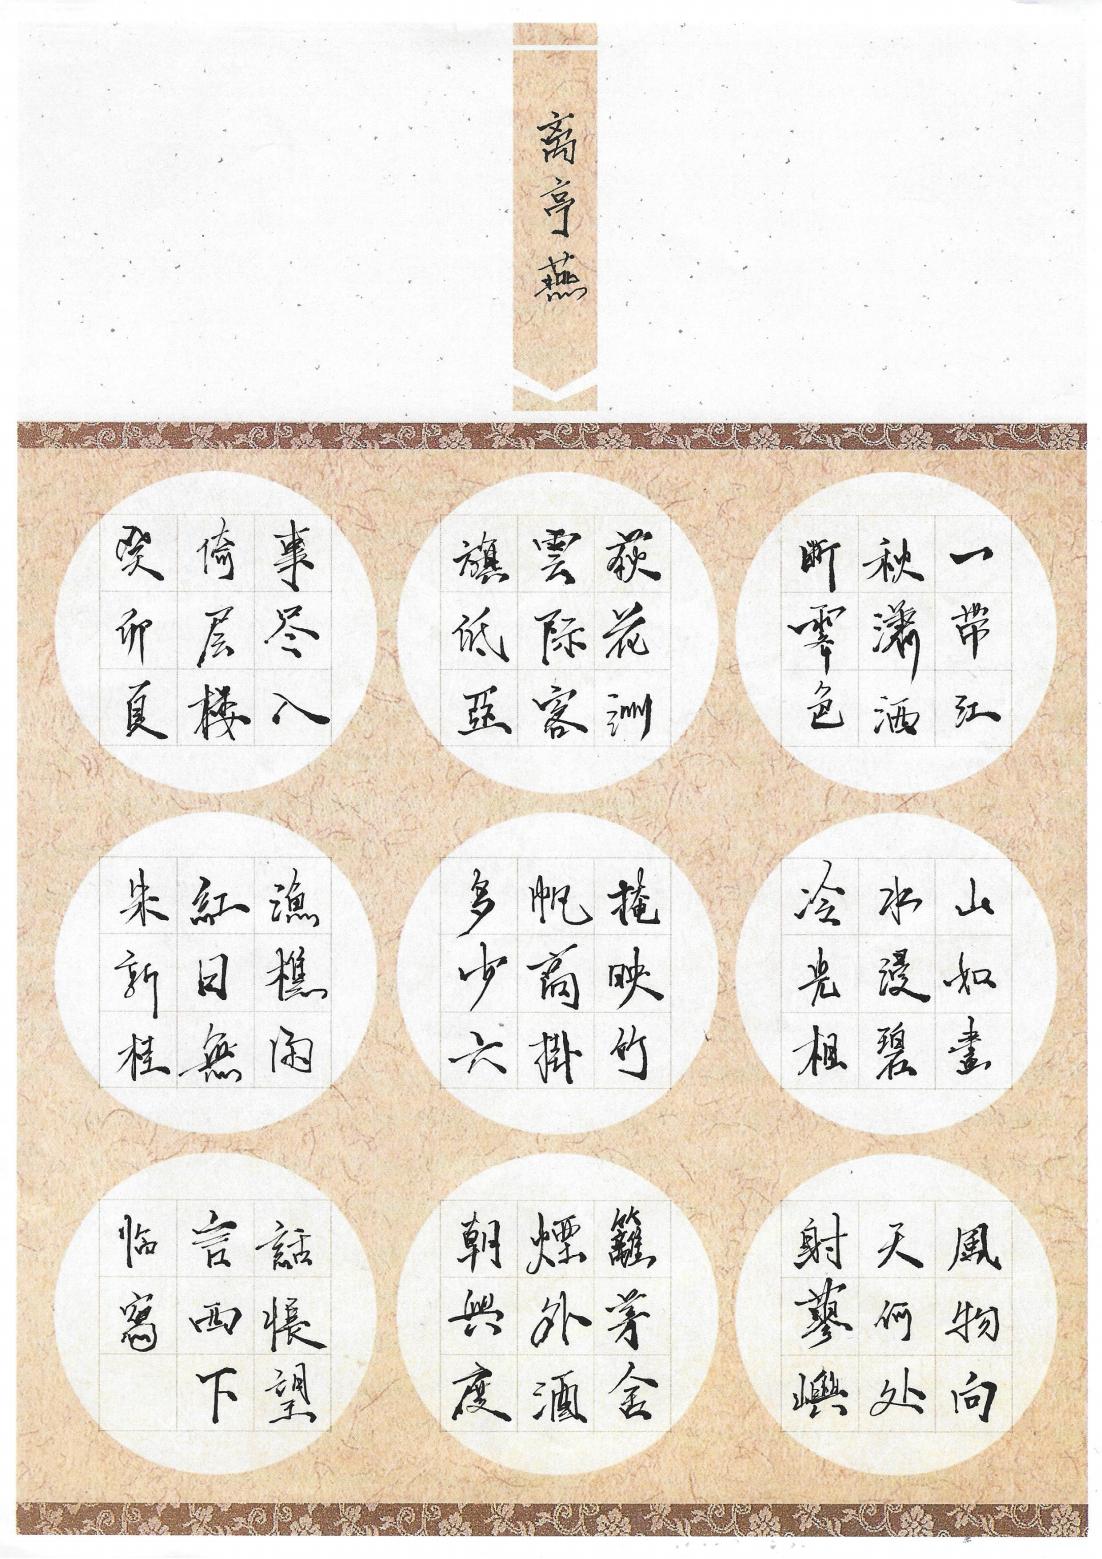 离亭燕
一带江山如畫風物向
秋瀟洒水漫碧天何处
断霽色冷光相射蓼嶼
荻花洲掩映竹籬茅舍
雲际客帆高掛煙外酒
旗低亞多少六朝興廢
事尽入漁樵閒話悵望
倚层楼紅日無言西下
癸卯夏朱新桂临寫